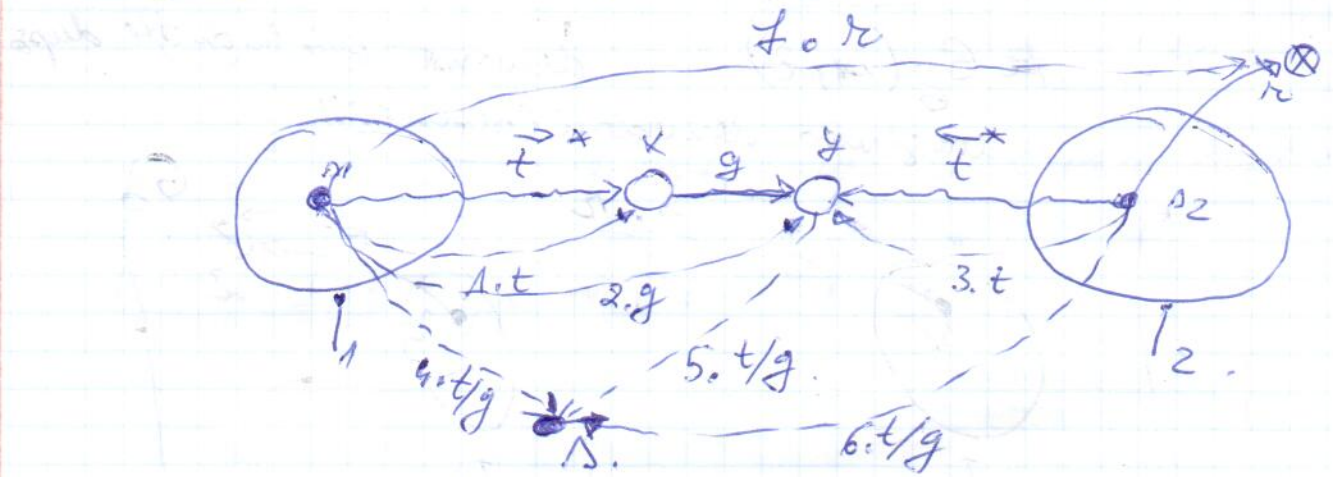 7. r
r
t * x g y t *
s1 s2
1.t
2.g
3.t
1 2.
4.t/g
5. t/g.
6.t/g
s.